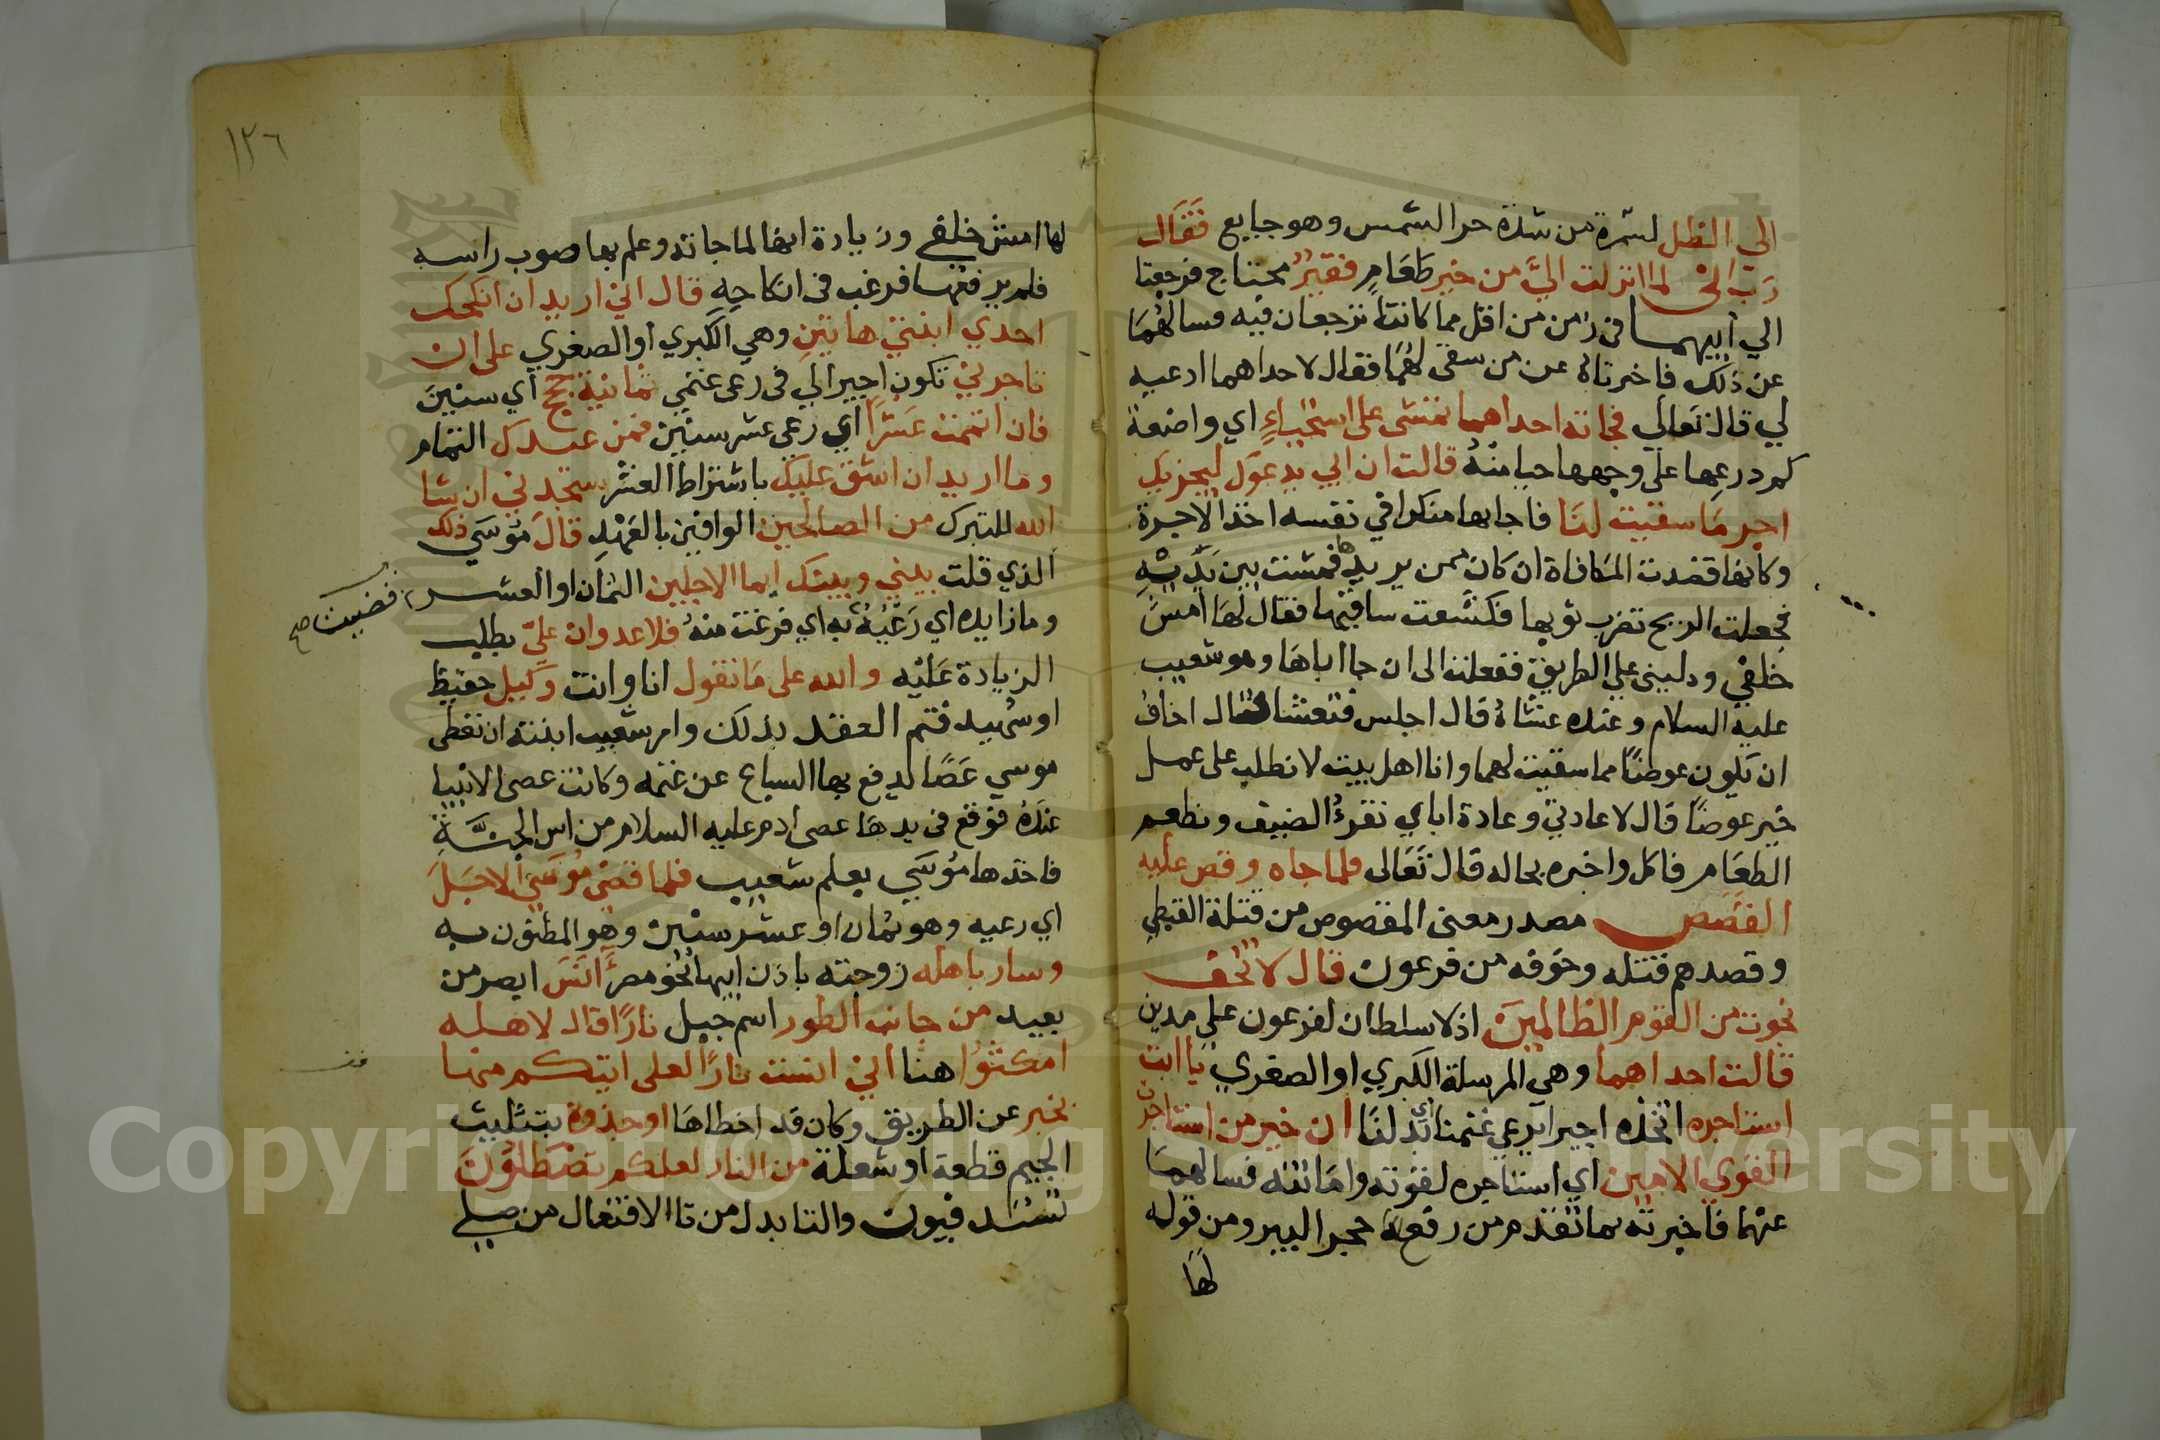 الى الظل لسمرة من شدة حر الشمس وهو جايع فقال
رب اني لما انزلت اليَّ من خير طعام فقير محتاج فرجعتا
الي ابيهما في زمن من اقل مما كانتا ترجعان فيه فسالهما
عن ذلك فاخبرتاه عن من سقى لهما فقال لاحداهما ادعيه
لي قال تعالي فجاته احداهما تمشى على استحياءٍ اي واضعة
كم درعها على وجهها حيا منه قالت ان ابي يدعوك ليجزيك
اجر ما سقيت لنا فاجابها منكرا في نفسه اخذ الاجرة
وكانها قصدت المكافاة ان كان ممن يريدها فمشت بين يديه
فجعلت الريح تضرب ثوبها فكشفت ساقيها فقال لها امش
خلفي ودليني على الطريق ففعلت الى ان جا اباها وهو شعيب
عليه السلام وعنده عشاء قال اجلس فتعشا فقال اخاف
ان يكون عوضًا مما سقيت لهما وانا اهل بيت لا نطلب على عمل
خير عوضًا قال لا عادتي وعادة اباي نقرئ الضيف ونطعم
الطعام فاكل واخبره بحاله قال تعالى فلما جاه وقص عليه
القصص مصدر معنى المقصوص من قتلة القبطي
وقصدهم قتله وخوفه من فرعون قال لا تخف
نجوت من القوم الظالمين اذ لا سلطان لفرعون علي مدين
قالت احداهما وهي المرسلة الكبري او الصغري يا ابت
استاجره اتخذه اجيرا يرعي غنمنا اي بدلنا ان خير من استاجرت
القوي الامين اي استاجره لقوته وامانته فسالهما
عنهما فاخبرته بما تقدم من رفعه حجر البير ومن قوله
لها
١٢٦
لها امش خلفي وزيادة انها لما جاته وعلم بها صوب راسه
فلم يرفعها فرغب في انكاحه قال اني اريد ان انكحك
احدي ابنتي هاتين وهي الكبري او الصغري على ان
تاجرني تكون اجيرا لي في رعى غنمي ثمانية حجج اي سنين
فان اتممت عشرًا اي رعى عشر سنين فمن عندك التمام
وما اريد ان اشق عليك باشتراط العشر ستجدني ان شا
الله للتبرك من الصالحين الوافين بالعهد قال موسي ذلك
الذي قلت بيني وبينك ايما الاجلين الثمان او العشر
قضيت صح
وما زايده اي رعيه به اي فرغت منه فلا عدوان عليّ بطلب
الزيادة عليه والله على ما نقول انا وانت وكيل حفيظ
او شهيد فتم العقد بذلك وامر شعيب ابنته ان تعطى
موسي عصًا ليدفع بها السباع عن غنمه وكانت عصى الانبيا
عنده فوقع في يدها عصى ادم عليه السلام من اس الجنة
فاخذها موسي بعلم شعيب فلما قضى موسي الاجل
اي رعيه وهو ثمان او عشر سنين وهو المظنون به
وسار باهله زوجته باذن ابيها نحو مصر انس ابصر من
بعيد من جانب الطور اسم جبل نارًا قال لاهله
امكثوا هنا اني انست نارًا لعلى اتيكم منها
بخبر عن الطريق وكان قد اخطاها او جذوة بتثليث
الجيم قطعة او شعلة من النار لعلكم تصطلون
تستدفيون والتا بدل من تا الافتعال من صلي
Copyright © King Saud University